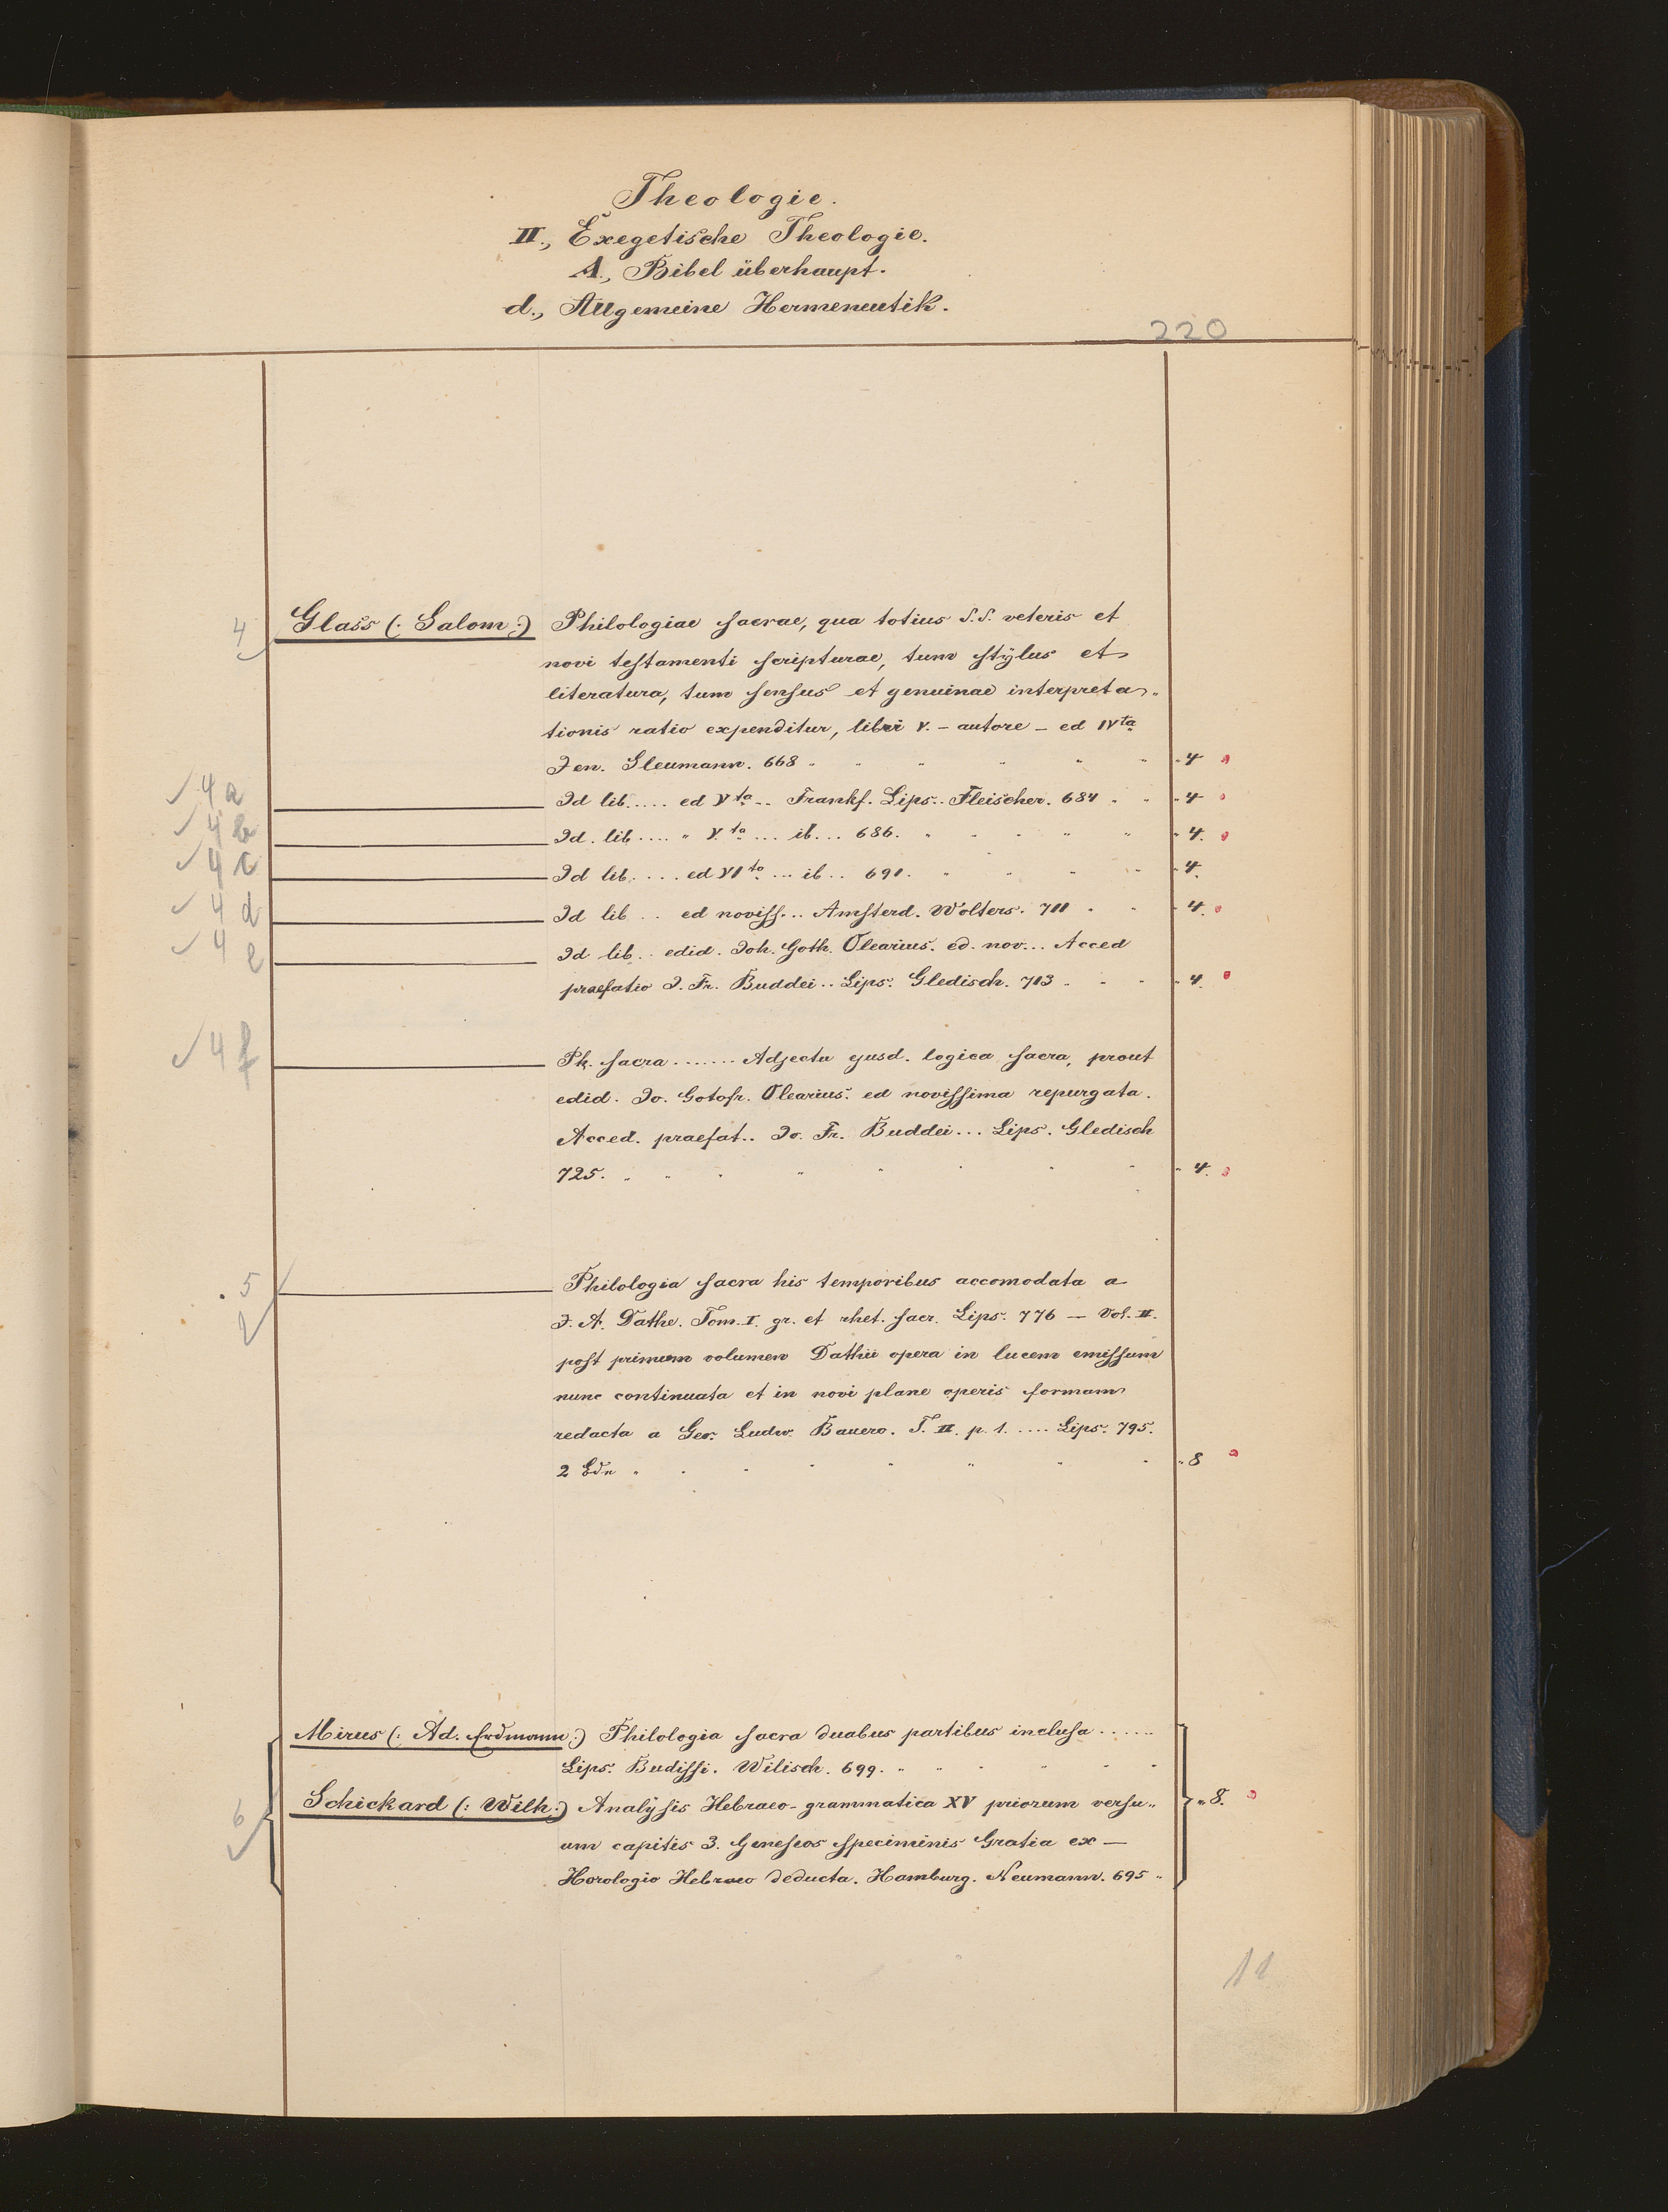 Theologie.
II., Exegetische Theologie.
A., Bibel überhaupt.
d., Allgemeine Hermeneutik.
220
4 Glass (: Salom :) Philologiae sacrae, qua totius S.S. veteris et
novi testamenti scripturae, tum stÿlus et
literatura, tum sensus et genuinae interpreta„
tionis ratio expenditur, libri V. – autore – ed IVta
Jen. Gleumann. 668 „ 4
4a Id lib..... ed Vta .. Frankf. Lips.. Fleischer. 684 „ 4
4b Id. lib .... „ V.ta ... ib... 686. „ 4.
4c Id lib..... ed VIta ... ib.. 691. „ 4.
4d Id lib .. ed noviss... Amsterd. Wolters. 711 „ 4.
4e Id lib.. edid. Joh. Goth. Olearius. ed. nov... Acced
praefatio J. Fr. Buddei.. Lips. Gledisch. 713 „ 4.
4f Ph. sacra ....... Adjecta ejusd. logica sacra, prout
edid. Jo. Gotofr. Olearius. ed novissima repurgata.
Acced. praefat.. Jo. Fr. Buddei... Lips. Gledisch
725. „ 4.
5 Philologia sacra his temporibus accomodata a
2 J. A. Dathe. Tom. I. gr. et rhet. sacr. Lips. 776 — Vol. II.
post primum volumen Dathii opera in lucem emissum
nunc continuata et in novi plane operis formam
redacta a Geo. Ludw. Bauero. T. II. p. 1. .... Lips. 795.
2 Bde „ 8
Mirus (: Ad. Erdmann :) Philologia sacra duabus partibus inclusa ......
Lips. Budissi. Wilisch. 699. „
6 Schickard (: Wilh :) Analÿsis Hebraeo-grammatica XV priorum versu„ „ 8.
um capitis 3. Geneseos speciminis Gratia ex —
Horologio Hebraeo deducta. Hamburg. Neumann. 695 „
11